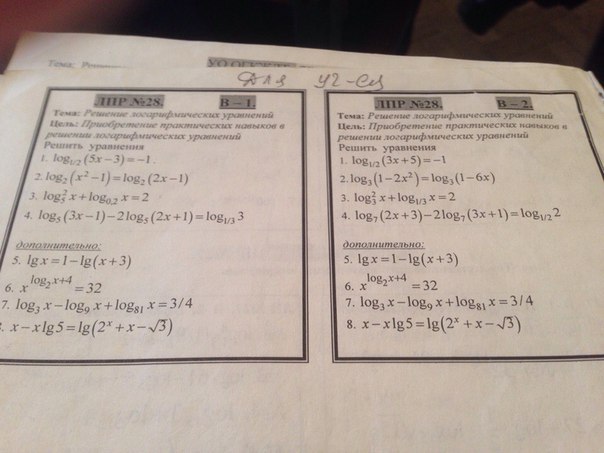 Тема:
Для уч-ся
ЛПР №28. В – 1.
Тема: Решение логарифмических уравнений
Цель: Приобретение практических навыков в
решении логарифмических уравнений
Решить уравнения
1. log₁/₂(5x−3)=−1.
2. log₂(x²−1)=log₂(2x−1)
3. log₅²x+log₀,₂x=2
4. log₅(3x−1)−2log₅(2x+1)=log₁/₃3
дополнительно:
5. lgx=1−lg(x+3)
6. x^(log₂x+4)=32
7. log₃x−log₉x+log₈₁x=3/4
8. x−xlg5=lg(2ˣ+x−√3)
ЛПР №28. В – 2.
Тема: Решение логарифмических уравнений
Цель: Приобретение практических навыков в
решении логарифмических уравнений
Решить уравнения
1. log₁/₂(3x+5)=−1
2. log₃(1−2x²)=log₃(1−6x)
3. log₃²x+log₁/₃x=2
4. log₇(2x+3)−2log₇(3x+1)=log₁/₂2
дополнительно:
5. lgx=1−lg(x+3)
6. x^(log₂x+4)=32
7. log₃x−log₉x+log₈₁x=3/4
8. x−xlg5=lg(2ˣ+x−√3)